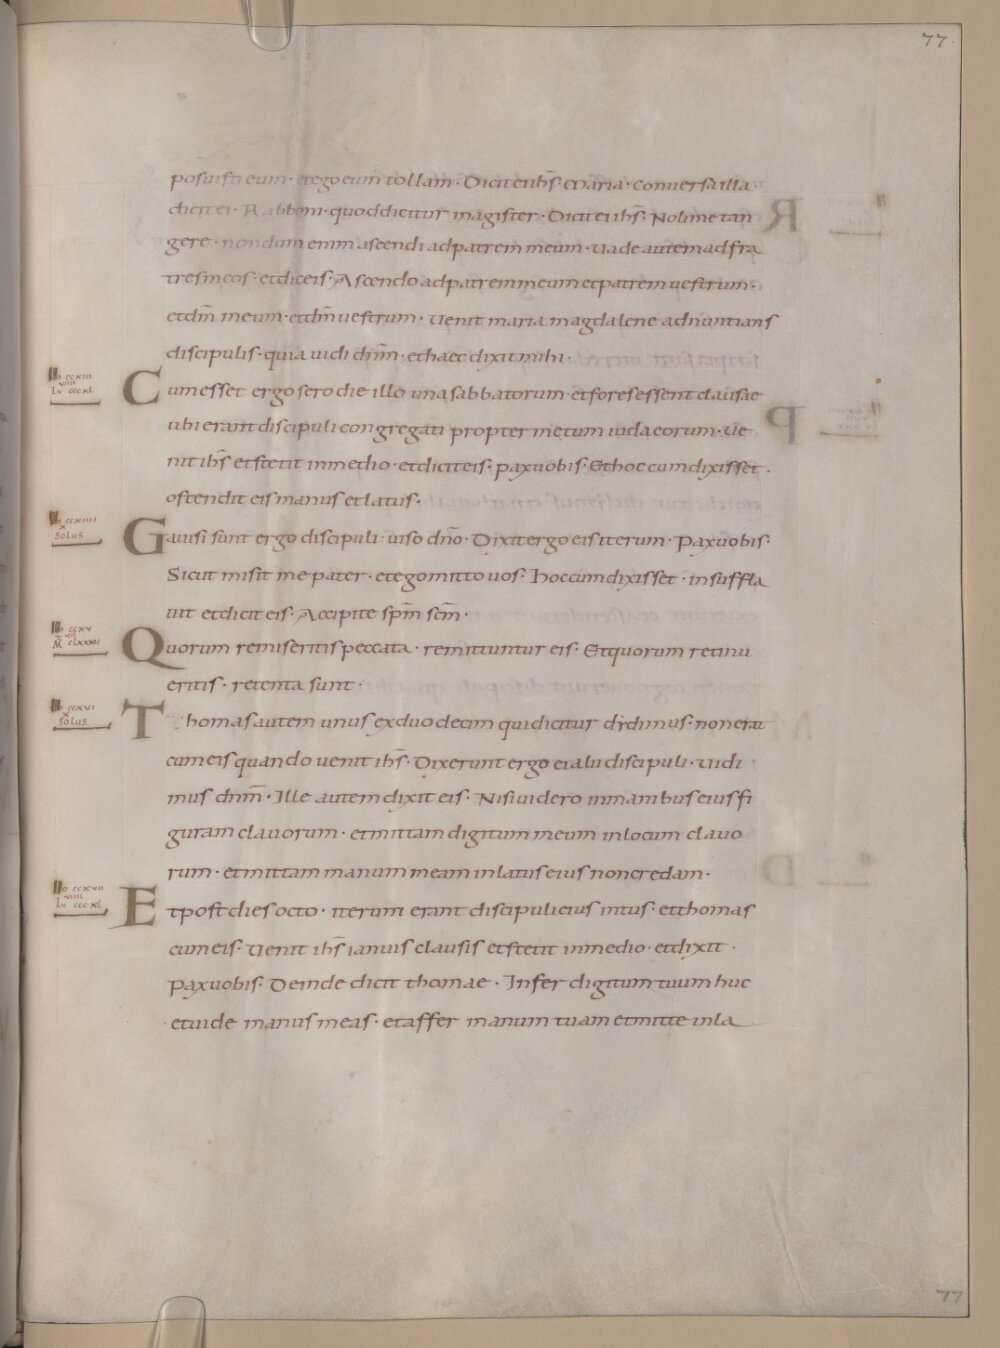 77
posuisti eum · et ego eum tollam · Dicit ei ih̅s · Maria · conversa illa ·
dicit ei · Rabboni · quod dicitur magister · Dicit ei ih̅s · Noli me tan
gere · nondum enim ascendi ad patrem meum · Vade autem ad fra
tres meos · et dic eis · Ascendo ad patrem meum et patrem uestrum ·
et dm̅ meum · et dm̅ uestrum · Venit maria magdalene adnuntians
discipulis · quia uidi dnm̅ · et haec dixit mihi ·
Io ccxiii
viiii
Lv cccxl
Cum esset ergo sero die illo una sabbatorum · et fores essent clausae
ubi erant discipuli congregati propter metum iudaeorum · Ve
nit ih̅s et stetit in medio · et dicit eis · pax uobis · Et hoc cum dixisset ·
ostendit eis manus et latus ·
Io ccxiiii
x
SOLUS
Gauisi sunt ergo discipuli · uiso dn̅o · Dixit ergo eis iterum · Pax uobis ·
Sicut misit me pater · et ego mitto uos · Hoc cum dixisset · insuffla
uit et dicit eis · Accipite spm̅ scm̅ ·
Io ccxv
vii
M clxxxii
Quorum remiseritis peccata · remittuntur eis · Et quorum retinu
eritis · retenta sunt ·
Io ccxvi
x
SOLUS
Thomas autem unus ex duodecim qui dicitur didimus · non erat
cum eis quando uenit ih̅s · Dixerunt ergo ei alii discipuli · Vidi
mus dnm̅ · Ille autem dixit eis · Nisi uidero in manibus eius fi
guram clauorum · et mittam digitum meum in locum clauo
rum · et mittam manum meam in latus eius non credam ·
Io ccxvii
viiii
Lv cccxl
Et post dies octo · iterum erant discipuli eius intus · et thomas
cum eis · Venit ih̅s ianuis clausis et stetit in medio · et dixit ·
pax uobis · Deinde dicit thomae · Infer digitum tuum huc
et uide manus meas · et affer manum tuam et mitte in la
77